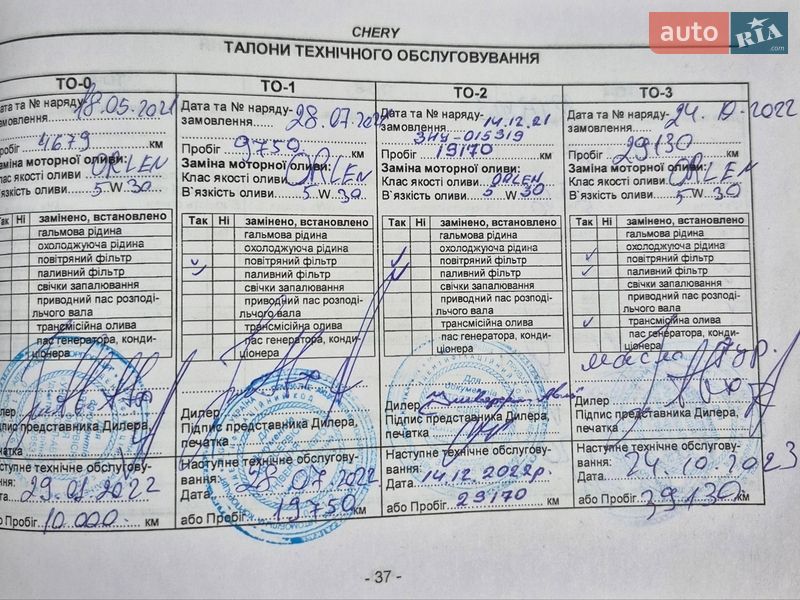 auto RIA .com
CHERY
ТАЛОНИ ТЕХНІЧНОГО ОБСЛУГОВУВАННЯ
ТО-0
Дата та № наряду-
замовлення 18.05.2021
Пробіг 4679 км
Заміна моторної оливи:
Клас якості оливи ORLEN
В`язкість оливи 5 W 30
Так Ні замінено, встановлено
гальмова рідина
охолоджуюча рідина
повітряний фільтр
паливний фільтр
свічки запалювання
приводний пас розподі-
льчого вала
трансмісійна олива
пас генератора, конди-
ціонера
Дилер
Підпис представника Дилера,
печатка
Наступне технічне обслугову-
вання:
Дата 29.01.2022
або Пробіг 10 000 км
ТО-1
Дата та № наряду-
замовлення 28.07.202
Пробіг 9750 км
Заміна моторної оливи:
Клас якості оливи ORLEN
В`язкість оливи 5 W 30
Так Ні замінено, встановлено
гальмова рідина
охолоджуюча рідина
повітряний фільтр
паливний фільтр
свічки запалювання
приводний пас розподі-
льчого вала
трансмісійна олива
пас генератора, конди-
ціонера
Дилер
Підпис представника Дилера,
печатка
Наступне технічне обслугову-
вання:
Дата 28 07 2022
або Пробіг 19750 км
ТО-2
Дата та № наряду- 14.12.21
замовлення ЗНУ-015319
Пробіг 19170 км
Заміна моторної оливи:
Клас якості оливи ORLEN
В`язкість оливи 5 W 30
Так Ні замінено, встановлено
гальмова рідина
охолоджуюча рідина
повітряний фільтр
паливний фільтр
свічки запалювання
приводний пас розподі-
льчого вала
трансмісійна олива
пас генератора, конди-
ціонера
Дилер
Підпис представника Дилера,
печатка
Наступне технічне обслугову-
вання:
Дата 14.12.2022р.
або Пробіг 29170 км
ТО-3
Дата та № наряду-
замовлення 24.10.2022
Пробіг 29130 км
Заміна моторної оливи:
Клас якості оливи ORLEN
В`язкість оливи 5 W 30
Так Ні замінено, встановлено
гальмова рідина
охолоджуюча рідина
повітряний фільтр
паливний фільтр
свічки запалювання
приводний пас розподі-
льчого вала
трансмісійна олива
пас генератора, конди-
ціонера
Дилер
Підпис представника Дилера,
печатка
Наступне технічне обслугову-
вання:
Дата 24.10.2023
або Пробіг 39130 км
- 37 -